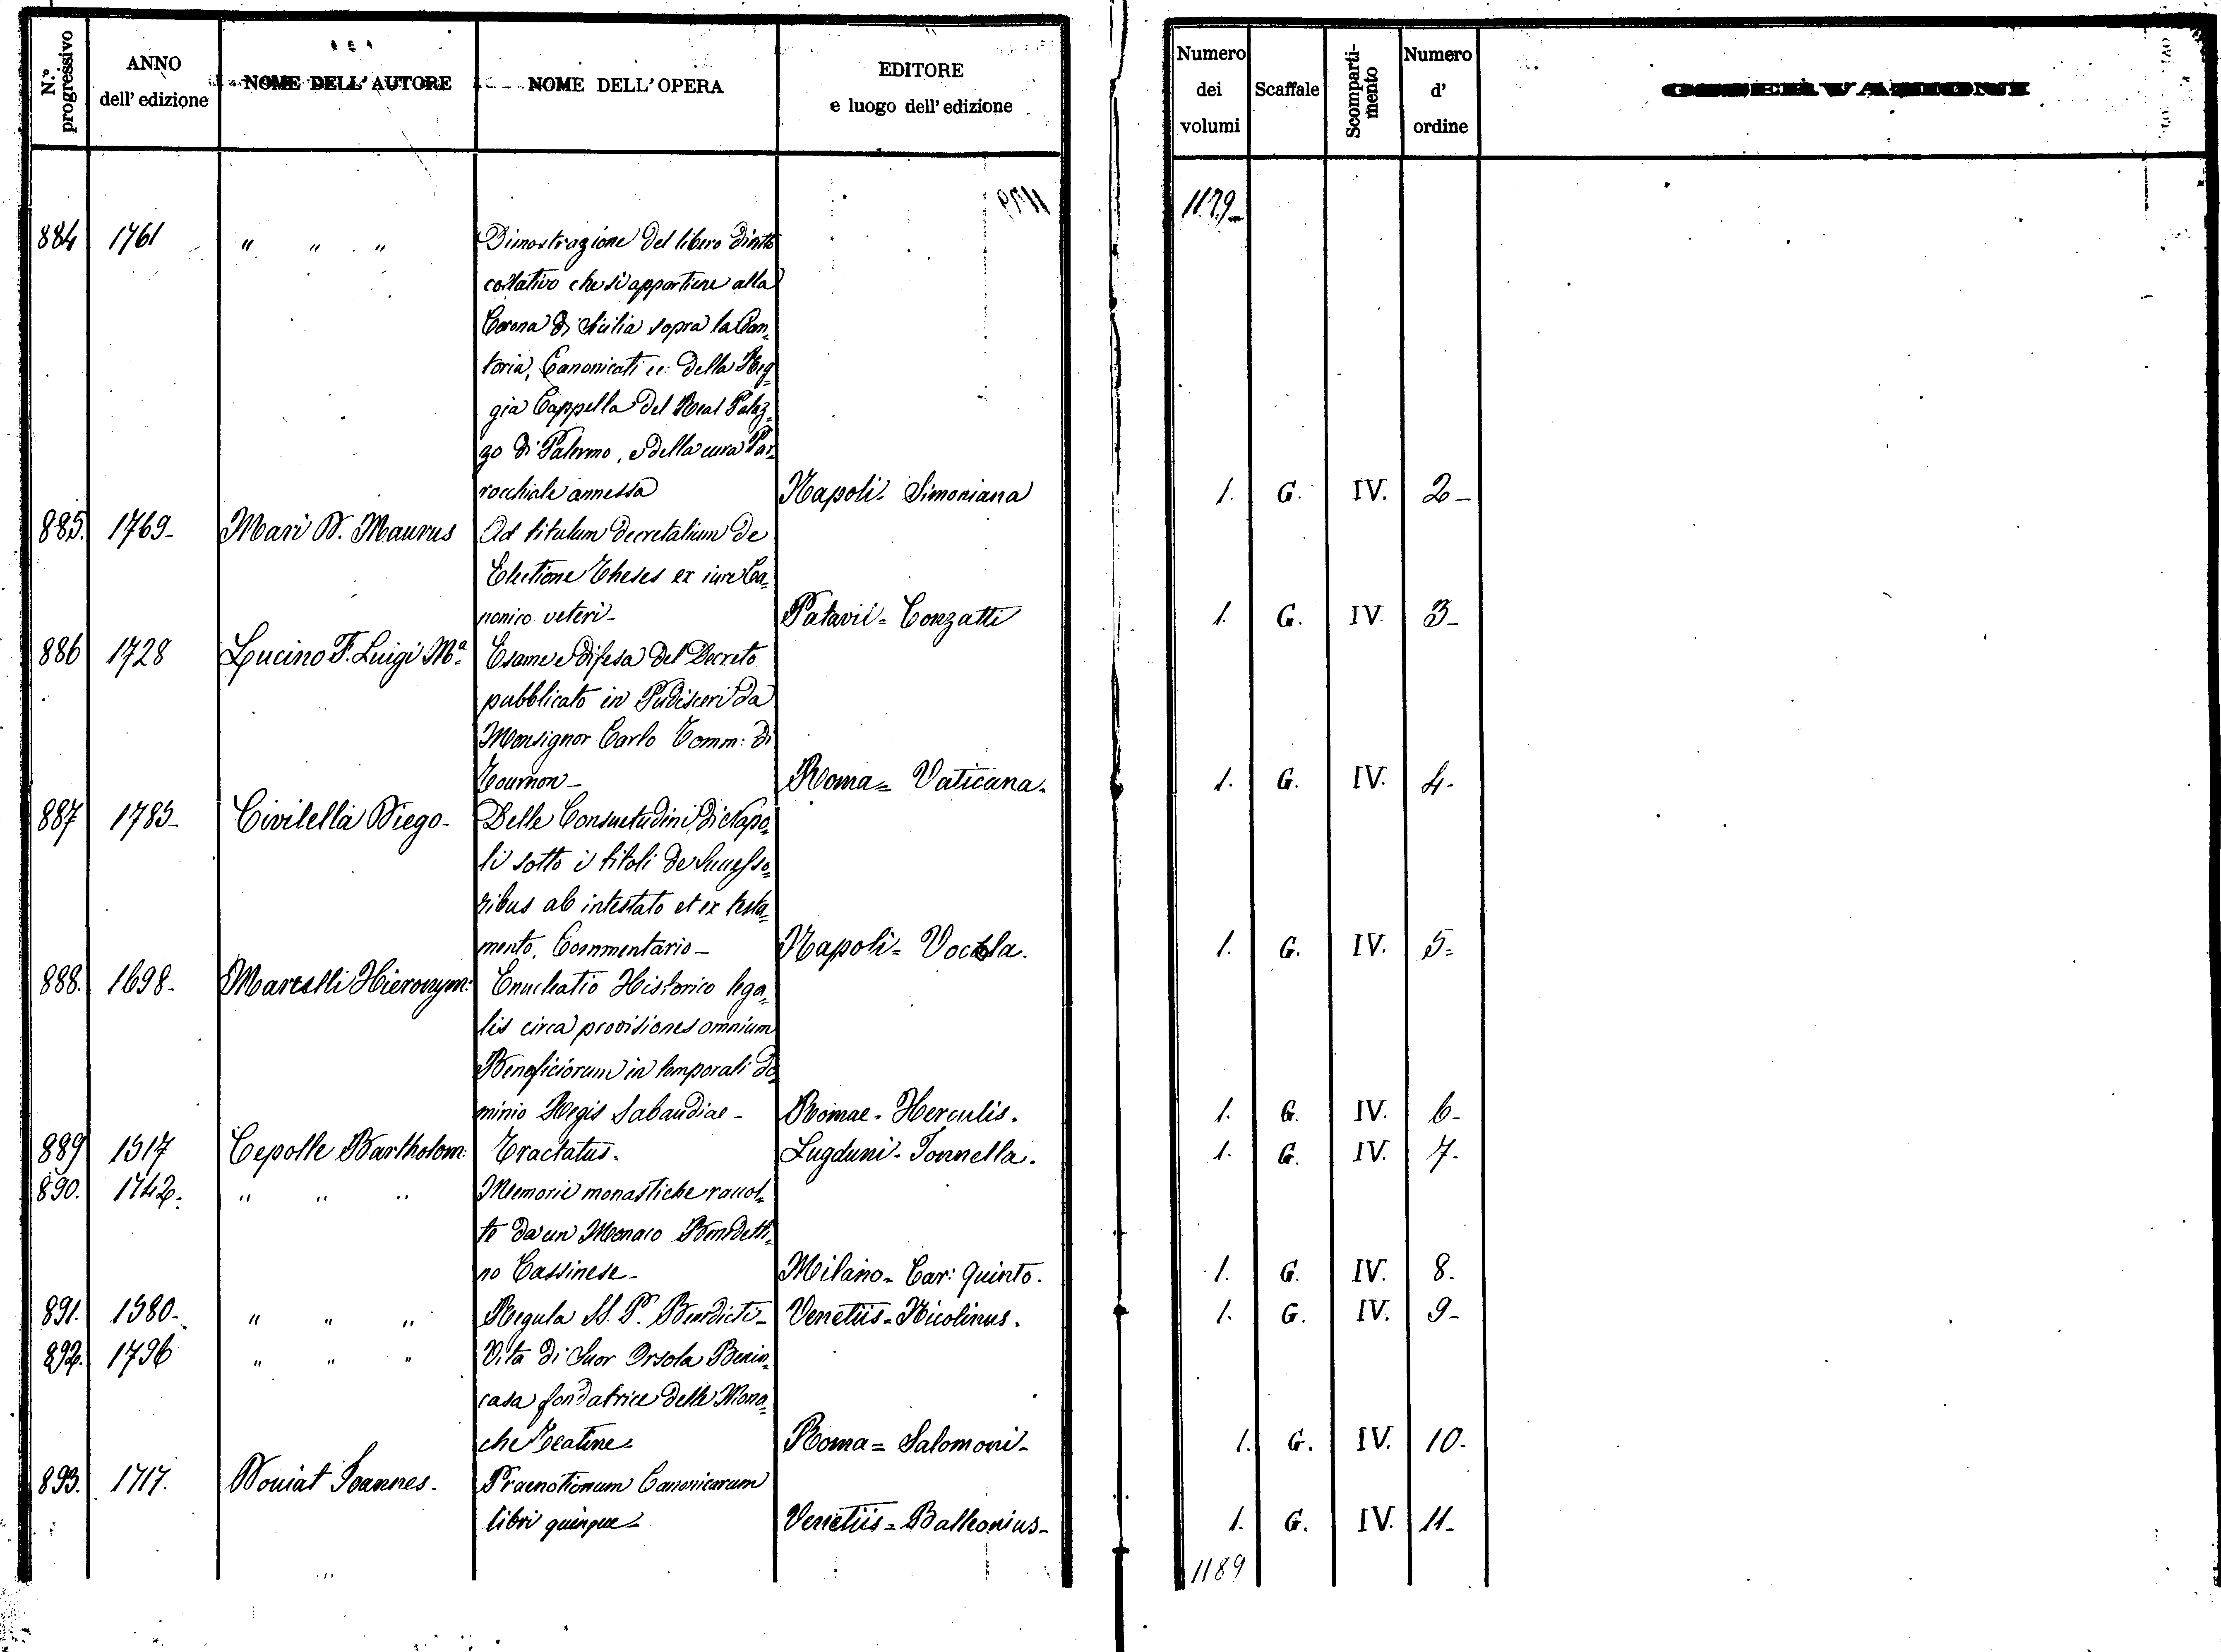 N.º progressivo | ANNO dell' edizione | NOME DELL' AUTORE | NOME DELL' OPERA | EDITORE e luogo dell' edizione | Numero dei volumi | Scaffale | Scomparti-mento | Numero d' ordine | OSSERVAZIONI
1179
884 1761 " " " Dimostrazione del libero diritto
collativo che si appartiene alla
Corona di Sicilia sopra la Can-
toria, Canonicati ec: della Reg-
gia Cappella del Real Palaz-
zo di Palermo, e della cura Par-
rocchiale annessa Napoli- Simoniana 1. G. IV. 2-
885. 1769- Mari D. Maurus Ad titulum decretalium de
Electione Theses ex iure Ca=
nonico veteri- Patavii- Conzatti 1. G. IV. 3-
886 1728 Lucino F. Luigi Mª Esame e difesa del Decreto
pubblicato in Pudisceri da
Monsignor Carlo Tomm: di
Tournon- Roma= Vaticana. 1. G. IV. 4.
887 1785- Civitella Diego- Delle Consuetudini di Napo=
li sotto i titoli de Successo=
ribus ab intestato et ex testa=
mento, Commentario- Napoli= Vocola. 1. G. IV. 5=
888. 1698- Martelli Hieronym: Enucleatio Historico lega=
lis circa provisiones omnium
Beneficiorum in temporali do
minio Regis Sabaudiae- Romae- Herculis. 1. G. IV. 6-
889 1517 Cepolle Bartholom: Tractatus. Lugduni- Jonnella. 1. G. IV. 7-
890. 1742. " " " Memorie monastiche raccol=
te da un Monaco Benedetti=
no Cassinese- Milano- Car: Quinto. 1. G. IV. 8.
891. 1580- " " " Regula S. P. Benedicti- Venetiis- Nicolinus. 1. G. IV. 9-
892. 1796 " " " Vita di Suor Orsola Benin=
casa fondatrice delle Mona=
che Teatine- Roma= Salomoni- 1. G. IV. 10-
893. 1717. Doujat Joannes. Praenotionum Canonicarum
libri quinque- Venetiis= Balleonius- 1. G. IV. 11-
1189